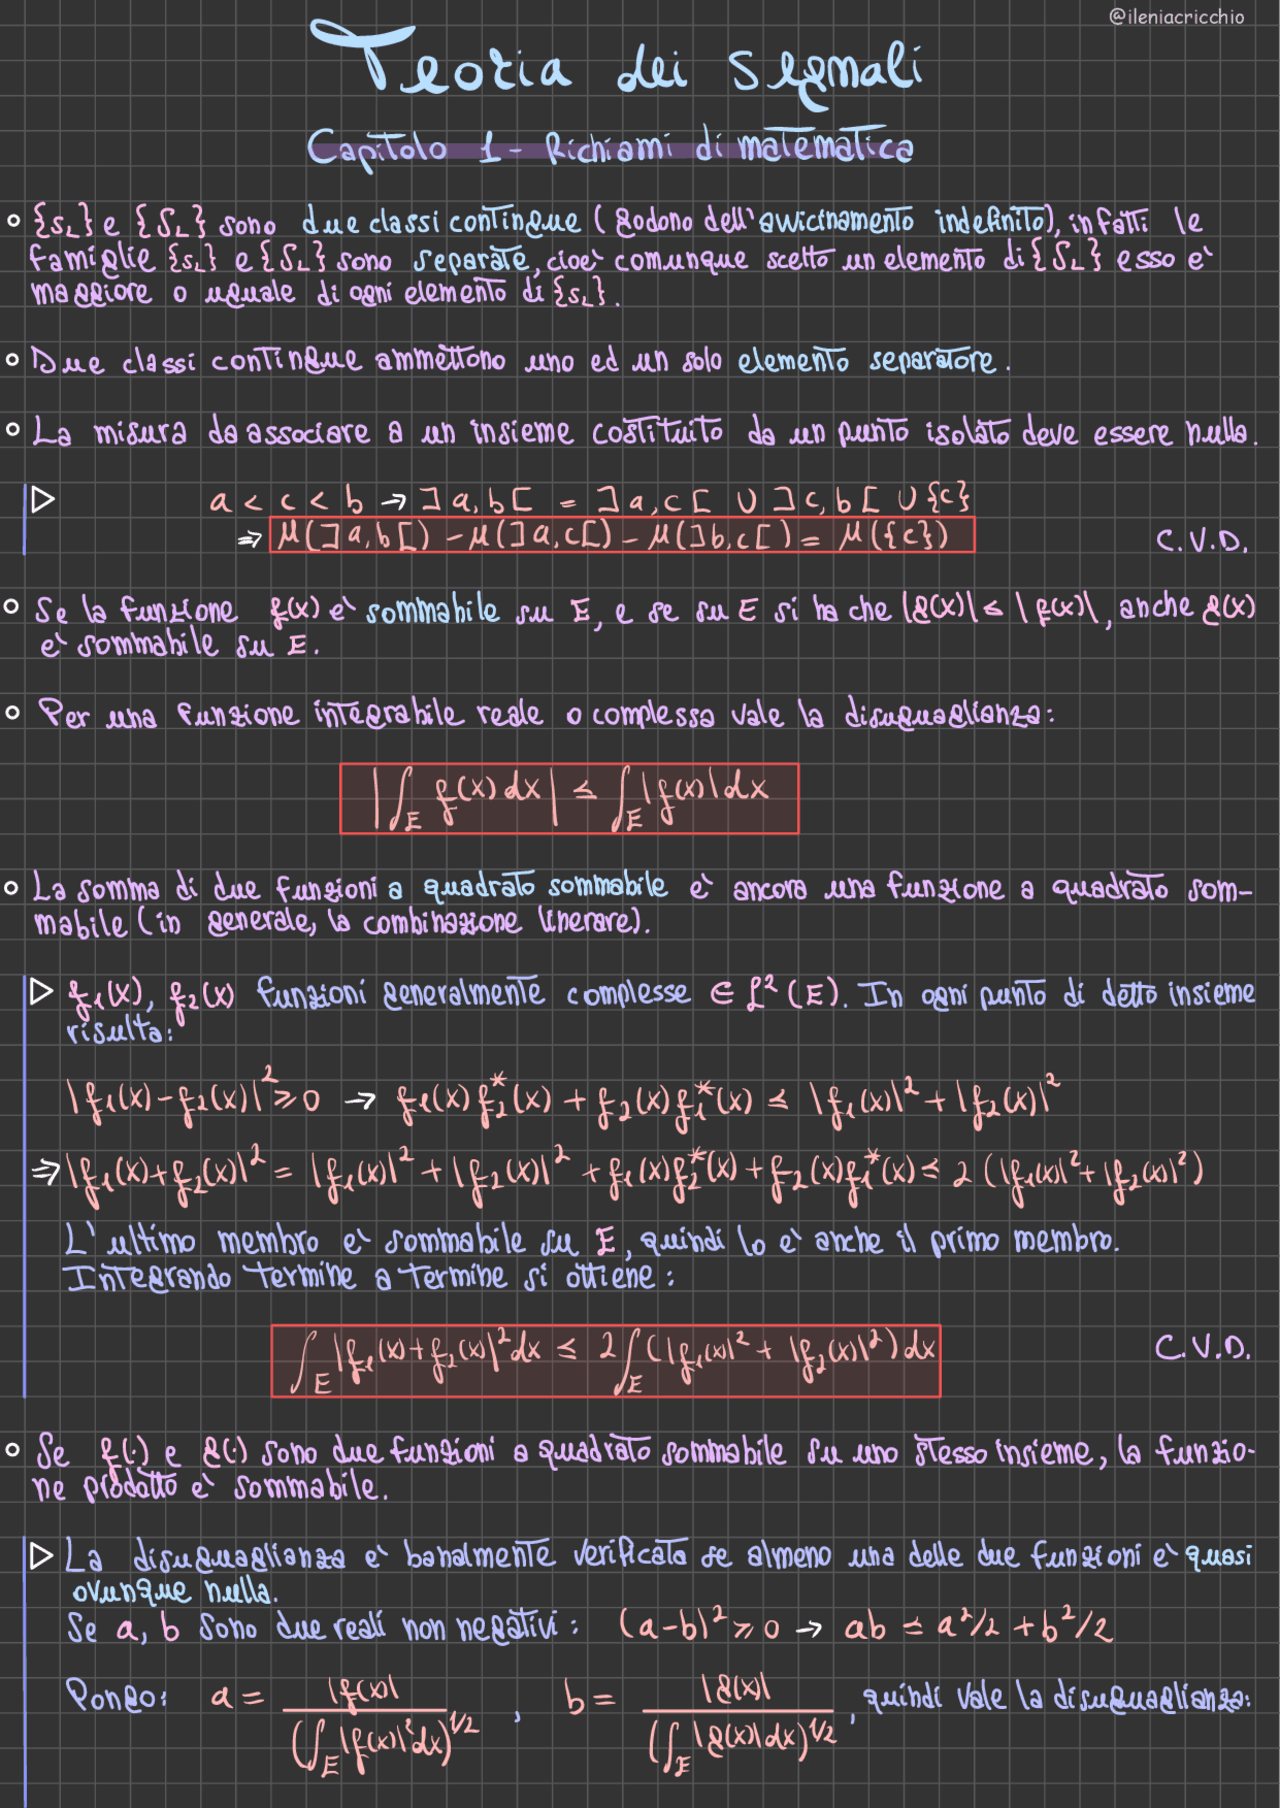 @ileniacricchio
Teoria dei segnali
Capitolo 1 - Richiami di matematica
○ {s_L} e {S_L} sono due classi contigue (godono dell'avvicinamento indefinito), infatti le
famiglie {s_L} e {S_L} sono separate, cioè comunque scelto un elemento di {S_L} esso è
maggiore o uguale di ogni elemento di {s_L}.
○ Due classi contingue ammettono uno ed un solo elemento separatore.
○ La misura da associare a un insieme costituito da un punto isolato deve essere nulla.
▷ a < c < b → ]a,b[ = ]a,c[ ∪ ]c,b[ ∪ {c}
⇒ μ(]a,b[) - μ(]a,c[) - μ(]b,c[) = μ({c}) C.V.D.
○ Se la funzione f(x) è sommabile su E, e se su E si ha che |g(x)| ≤ |f(x)|, anche g(x)
è sommabile su E.
○ Per una funzione integrabile reale o complessa vale la disuguaglianza:
|∫_E f(x) dx| ≤ ∫_E |f(x)| dx
○ La somma di due funzioni a quadrato sommabile è ancora una funzione a quadrato som-
mabile (in generale, la combinazione linerare).
▷ f₁(x), f₂(x) funzioni generalmente complesse ∈ L²(E). In ogni punto di detto insieme
risulta:
|f₁(x)-f₂(x)|² ≥ 0 → f₁(x)f₂*(x) + f₂(x)f₁*(x) ≤ |f₁(x)|² + |f₂(x)|²
⇒ |f₁(x)+f₂(x)|² = |f₁(x)|² + |f₂(x)|² + f₁(x)f₂*(x) + f₂(x)f₁*(x) ≤ 2 (|f₁(x)|² + |f₂(x)|²)
L'ultimo membro è sommabile su E, quindi lo è anche il primo membro.
Integrando termine a termine si ottiene:
∫_E |f₁(x)+f₂(x)|² dx ≤ 2∫_E (|f₁(x)|² + |f₂(x)|²) dx C.V.D.
○ Se f(·) e g(·) sono due funzioni a quadrato sommabile su uno stesso insieme, la funzio-
ne prodotto è sommabile.
▷ La disuguaglianza è banalmente verificata se almeno una delle due funzioni è quasi
ovunque nulla.
Se a, b sono due reali non negativi: (a-b)² ≥ 0 → ab ≤ a²/2 + b²/2
Pongo: a = |f(x)| / (∫_E |f(x)|² dx)^1/2 , b = |g(x)| / (∫_E |g(x)| dx)^1/2 , quindi vale la disuguaglianza: